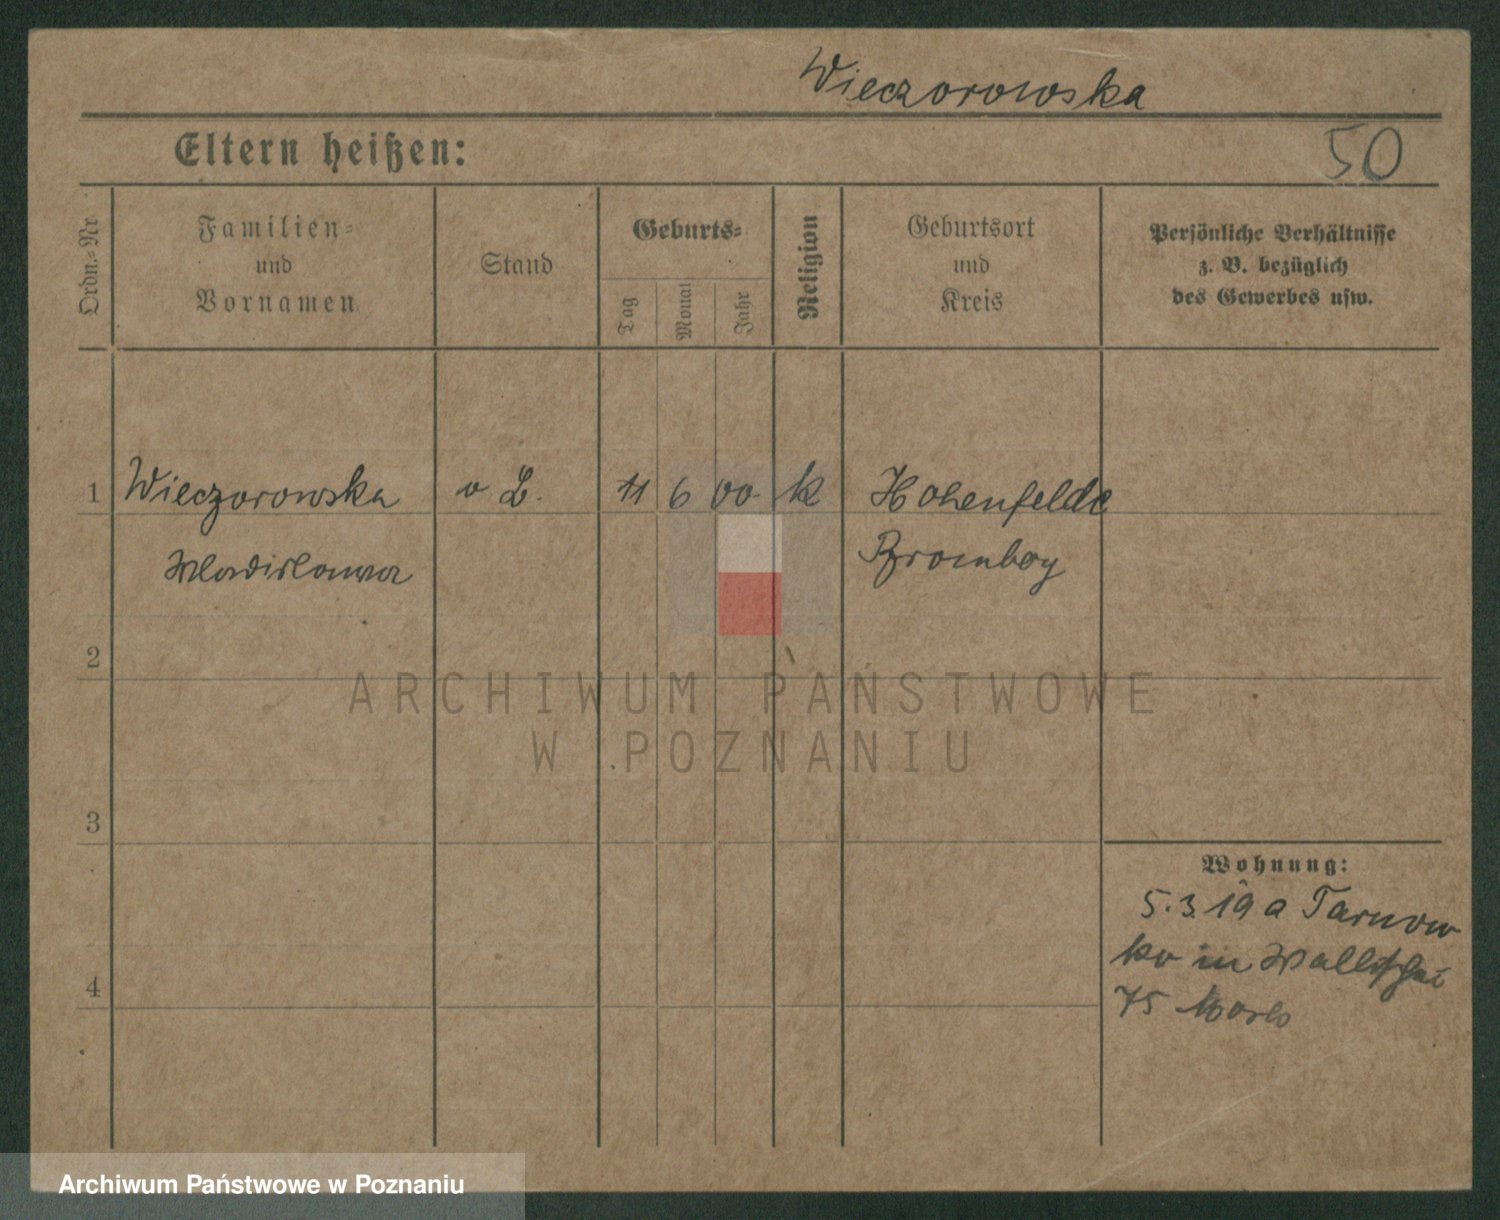 Wieczorowska
Eltern heißen:
50
Ordn.-Nr
Familien-
und
Vornamen
Stand
Geburts-
Tag
Monat
Jahr
Religion
Geburtsort
und
Kreis
Persönliche Verhältnisse
z. B. bezüglich
des Gewerbes usw.
1 Wieczorowska o L. 11 6 00 k Hohenfelde
Wladislawa Bromberg
2
ARCHIWUM PAŃSTWOWE
W POZNANIU
3
Wohnung:
5.3.19 a Tarnow
ko in Wallischei
75
4
Archiwum Państwowe w Poznaniu